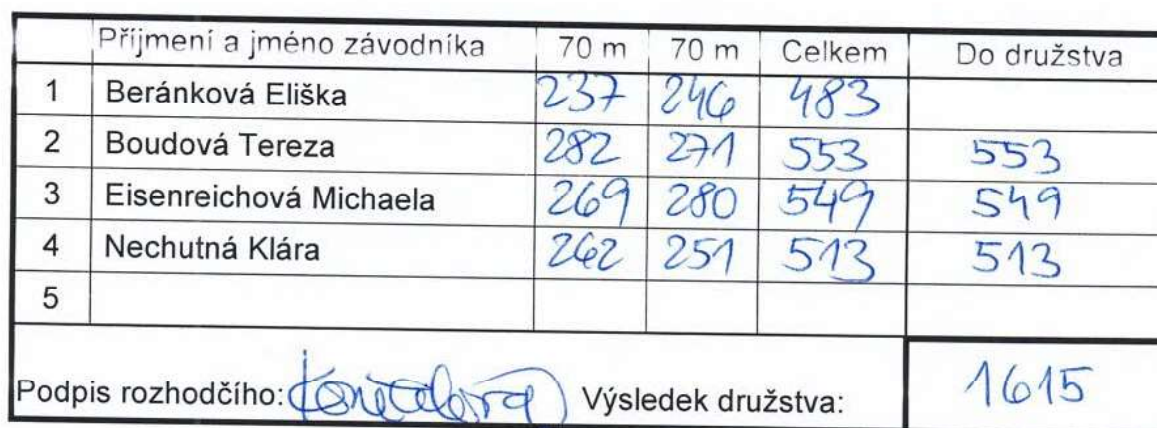 Příjmení a jméno závodníka 70 m 70 m Celkem Do družstva
1 Beránková Eliška 237 246 483
2 Boudová Tereza 282 271 553 553
3 Eisenreichová Michaela 269 280 549 549
4 Nechutná Klára 262 251 513 513
5
Podpis rozhodčího: Výsledek družstva: 1615